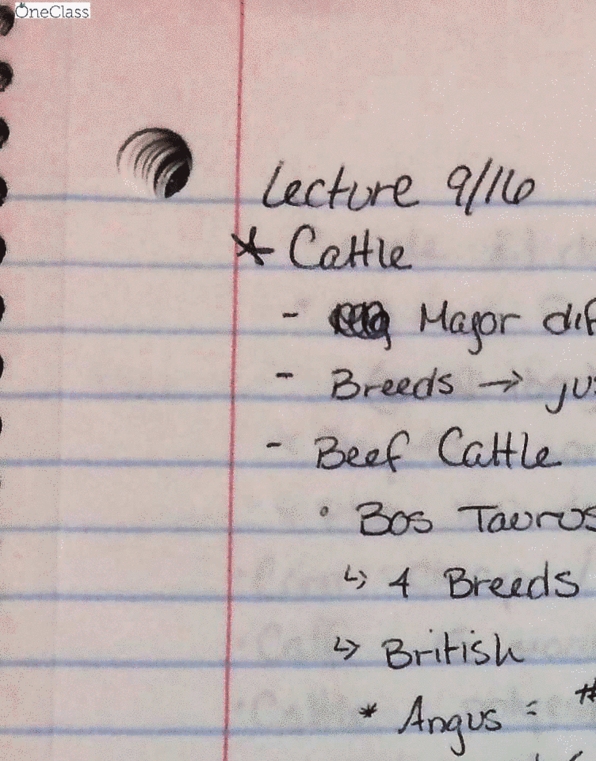 OneClass
Lecture 9/16
* Cattle
- Major dif
- Breeds → jus
- Beef Cattle
• Bos Taurus
↳ 4 Breeds
↳ British
* Angus = #